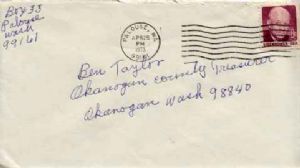 Box 33
Palouse
Wash
99161
PALOUSE, WA.
APR
PM
1973
99161
Ben Taylor
Okanogan county Treasurer
Okanogan Wash 98840